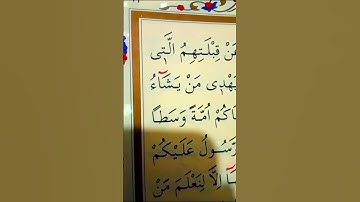 عَنْ قِبْلَتِهِمُ الَّتٖى
يَهْدٖى مَنْ يَشَٓاءُ
اُمَّةً وَسَطًا
عَلَيْكُمْ
اِلَّا لِنَعْلَمَ مَنْ